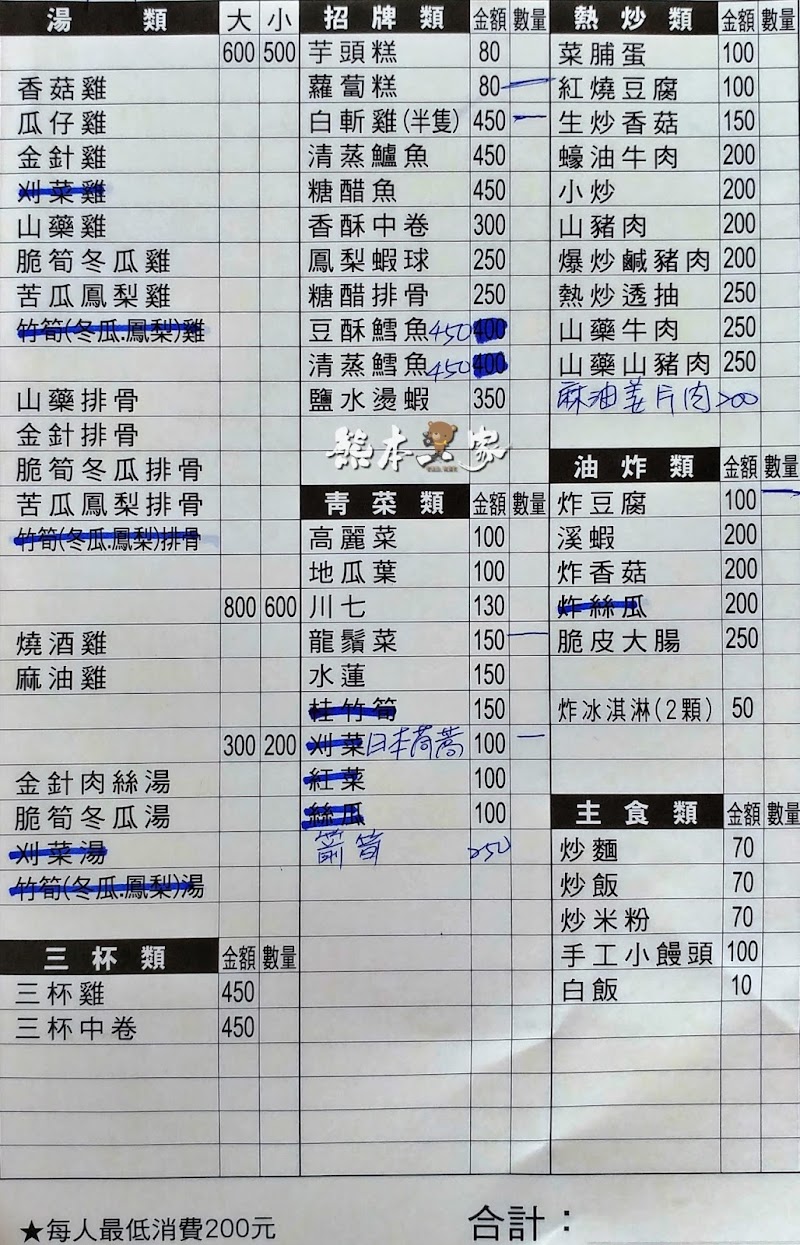 湯類 大 小
600 500
香菇雞
瓜仔雞
金針雞
刈菜雞
山藥雞
脆筍冬瓜雞
苦瓜鳳梨雞
竹筍(冬瓜.鳳梨)雞
山藥排骨
金針排骨
脆筍冬瓜排骨
苦瓜鳳梨排骨
竹筍(冬瓜.鳳梨)排骨
800 600
燒酒雞
麻油雞
300 200
金針肉絲湯
脆筍冬瓜湯
刈菜湯
竹筍(冬瓜.鳳梨)湯
三杯類 金額 數量
三杯雞 450
三杯中卷 450
招牌類 金額 數量
芋頭糕 80
蘿蔔糕 80
白斬雞(半隻) 450
清蒸鱸魚 450
糖醋魚 450
香酥中卷 300
鳳梨蝦球 250
糖醋排骨 250
豆酥鱈魚 450 400
清蒸鱈魚 450 400
鹽水燙蝦 350
熊本一家
青菜類 金額 數量
高麗菜 100
地瓜葉 100
川七 130
龍鬚菜 150
水蓮 150
桂竹筍 150
刈菜 日本茼蒿 100
紅菜 100
絲瓜 100
箭筍 250
熱炒類 金額 數量
菜脯蛋 100
紅燒豆腐 100
生炒香菇 150
蠔油牛肉 200
小炒 200
山豬肉 200
爆炒鹹豬肉 200
熱炒透抽 250
山藥牛肉 250
山藥山豬肉 250
麻油姜片肉 200
油炸類 金額 數量
炸豆腐 100
溪蝦 200
炸香菇 200
炸絲瓜 200
脆皮大腸 250
炸冰淇淋(2顆) 50
主食類 金額 數量
炒麵 70
炒飯 70
炒米粉 70
手工小饅頭 100
白飯 10
★每人最低消費200元
合計：